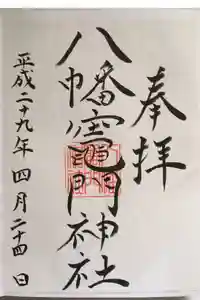 奉拝
八幡竈門神社
平成二十九年四月二十四日